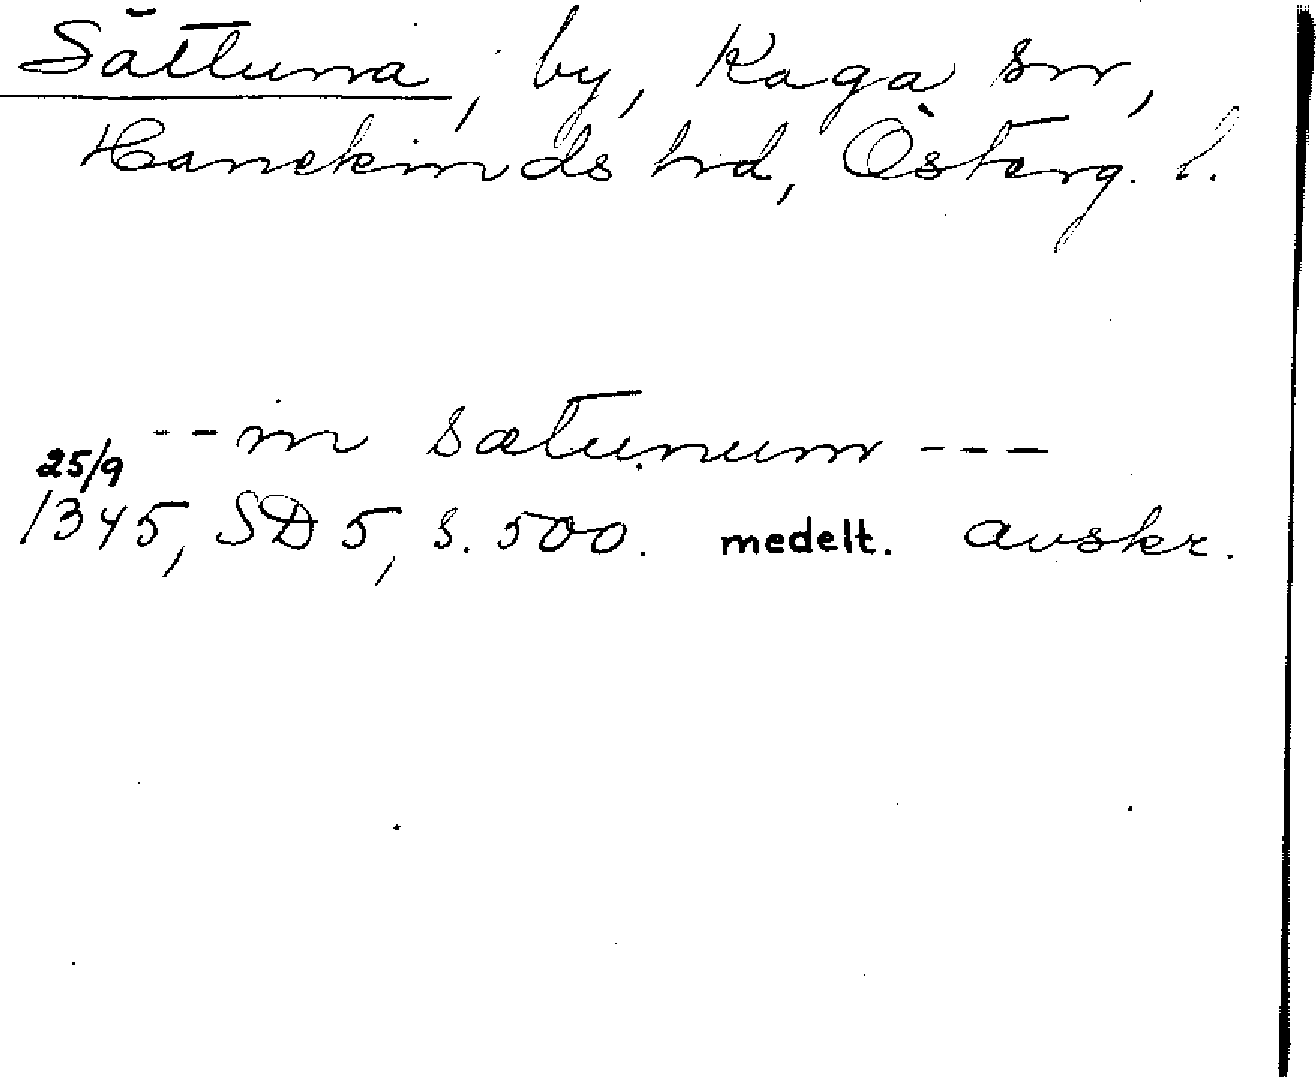 Sättuna, by, Kaga sn,
Hanekinds hrd, Österg. l.
-- in sætunum ---
25/9
1345, SD 5, s. 500. medelt. avskr.